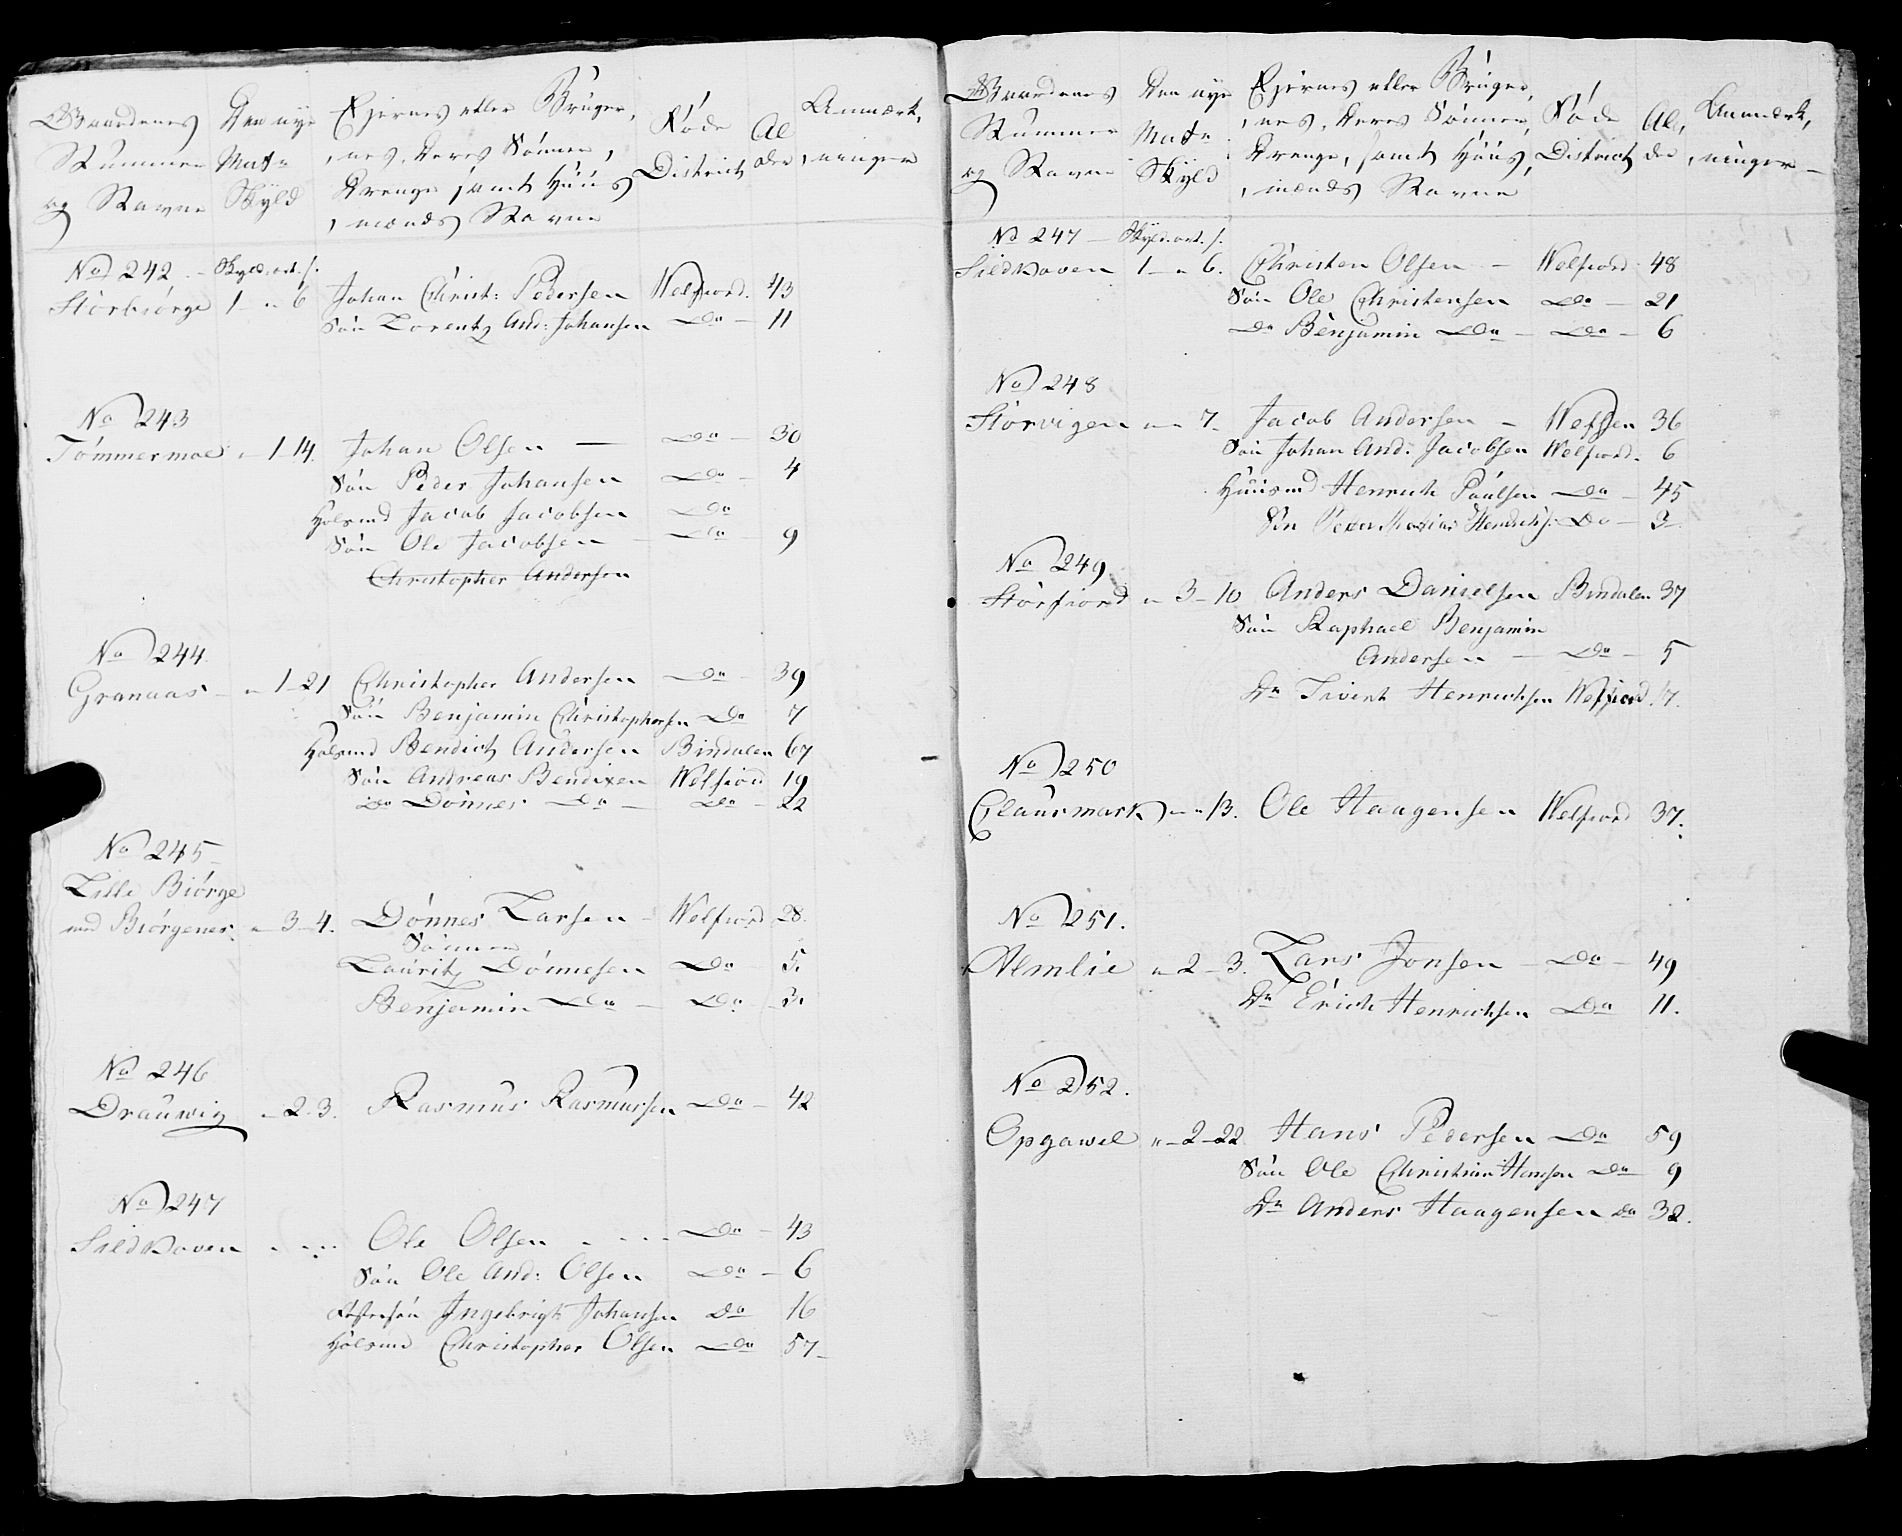 Gaardenes Den nye Ejernes eller Bruger, Føde Al Anmærk,
Nummer Matr. ,nes, deres Sønner, District der ,ninger
og Navne Skyld Drenge samt Huus
,mænds Navne
No 242 - Skyld. ort. s.
Storbiørge 1 - " 6 Johan Christ: Pedersen Welfiord. 43
Søn Lorentz And: Johansen Do - 11
No 243
Tømmermoe " 1 14. Johan Olsen — Do - 30
Søn Peder Johansen Do - 4
Huusmd Jacob Jacobsen Do
Søn Ole Jacobsen - Do - 9
Christopher Andersen
No 244
Granaas - " 1 - 21 Christopher Andersen Do - 39
Søn Benjamin Christophersen Do 7
Huusmd Bendict Andersen Bindalen 67
Søn Andreas Bendixen Welfiord 19
Do Dønnes Do - Do - 22
No 245
Lille Biørge
med Biørgenes. " 3 - 4. Dønnes Larsen - Welfiord 28.
Sønner
Lauritz Dønnesen Do - 5.
Benjamin Do - Do - 3.
No 246
Drauwig " 2 3. Rasmus Rasmussen Do - 42
No 247
Sildhoven Ole Olsen Do - 43
Søn Ole And: Olsen Do - 6
Ingebrigt Johansen Do 16
Huusmd Christopher Olsen Do 57 -
Gaardenes Den nye Ejernes eller Bruger,
Nummer Matr. ,nes, deres Sønner, Føde Al, Anmærk,
og Navne Skyld Drenge, samt Huus, District der ,ninger -
,mænds Navne
No 247 - Skyld. ort. s.
Sildhoven 1 - " 6. Christen Olsen - Welfiord 48
Søn Ole Christensen Do - 21
Do Benjamin Do - Do - 6
No 248
Storvigen " - 7 - Jacob Andersen - Wefsen 36
Søn Johan And: Jacobsen Welfiord - 6
Huusmd Henrich Paulsen Do - 45
Søn Peter Henrichs: Do - 3
No 249
Storfiord " 3 - 10 Anders Danielsen Bindalen 37
Søn Raphael Benjamin
Andersen - Do - 5
Dr Sivert Henrichsen Welfiord 17.
No 250
Claurmark - " 13. Ole Haagensen Welfiord 37.
No 251.
Almlie " 2 - 3. Lars Jonsen - Do - 49
Dr Erich Henrichsen Do 11.
No 252.
Opgawel " - 2 - 22. Hans Pedersen Do 59
Søn Ole Christian Hansen Do 9
Dr Anders Haagensen Do 32.